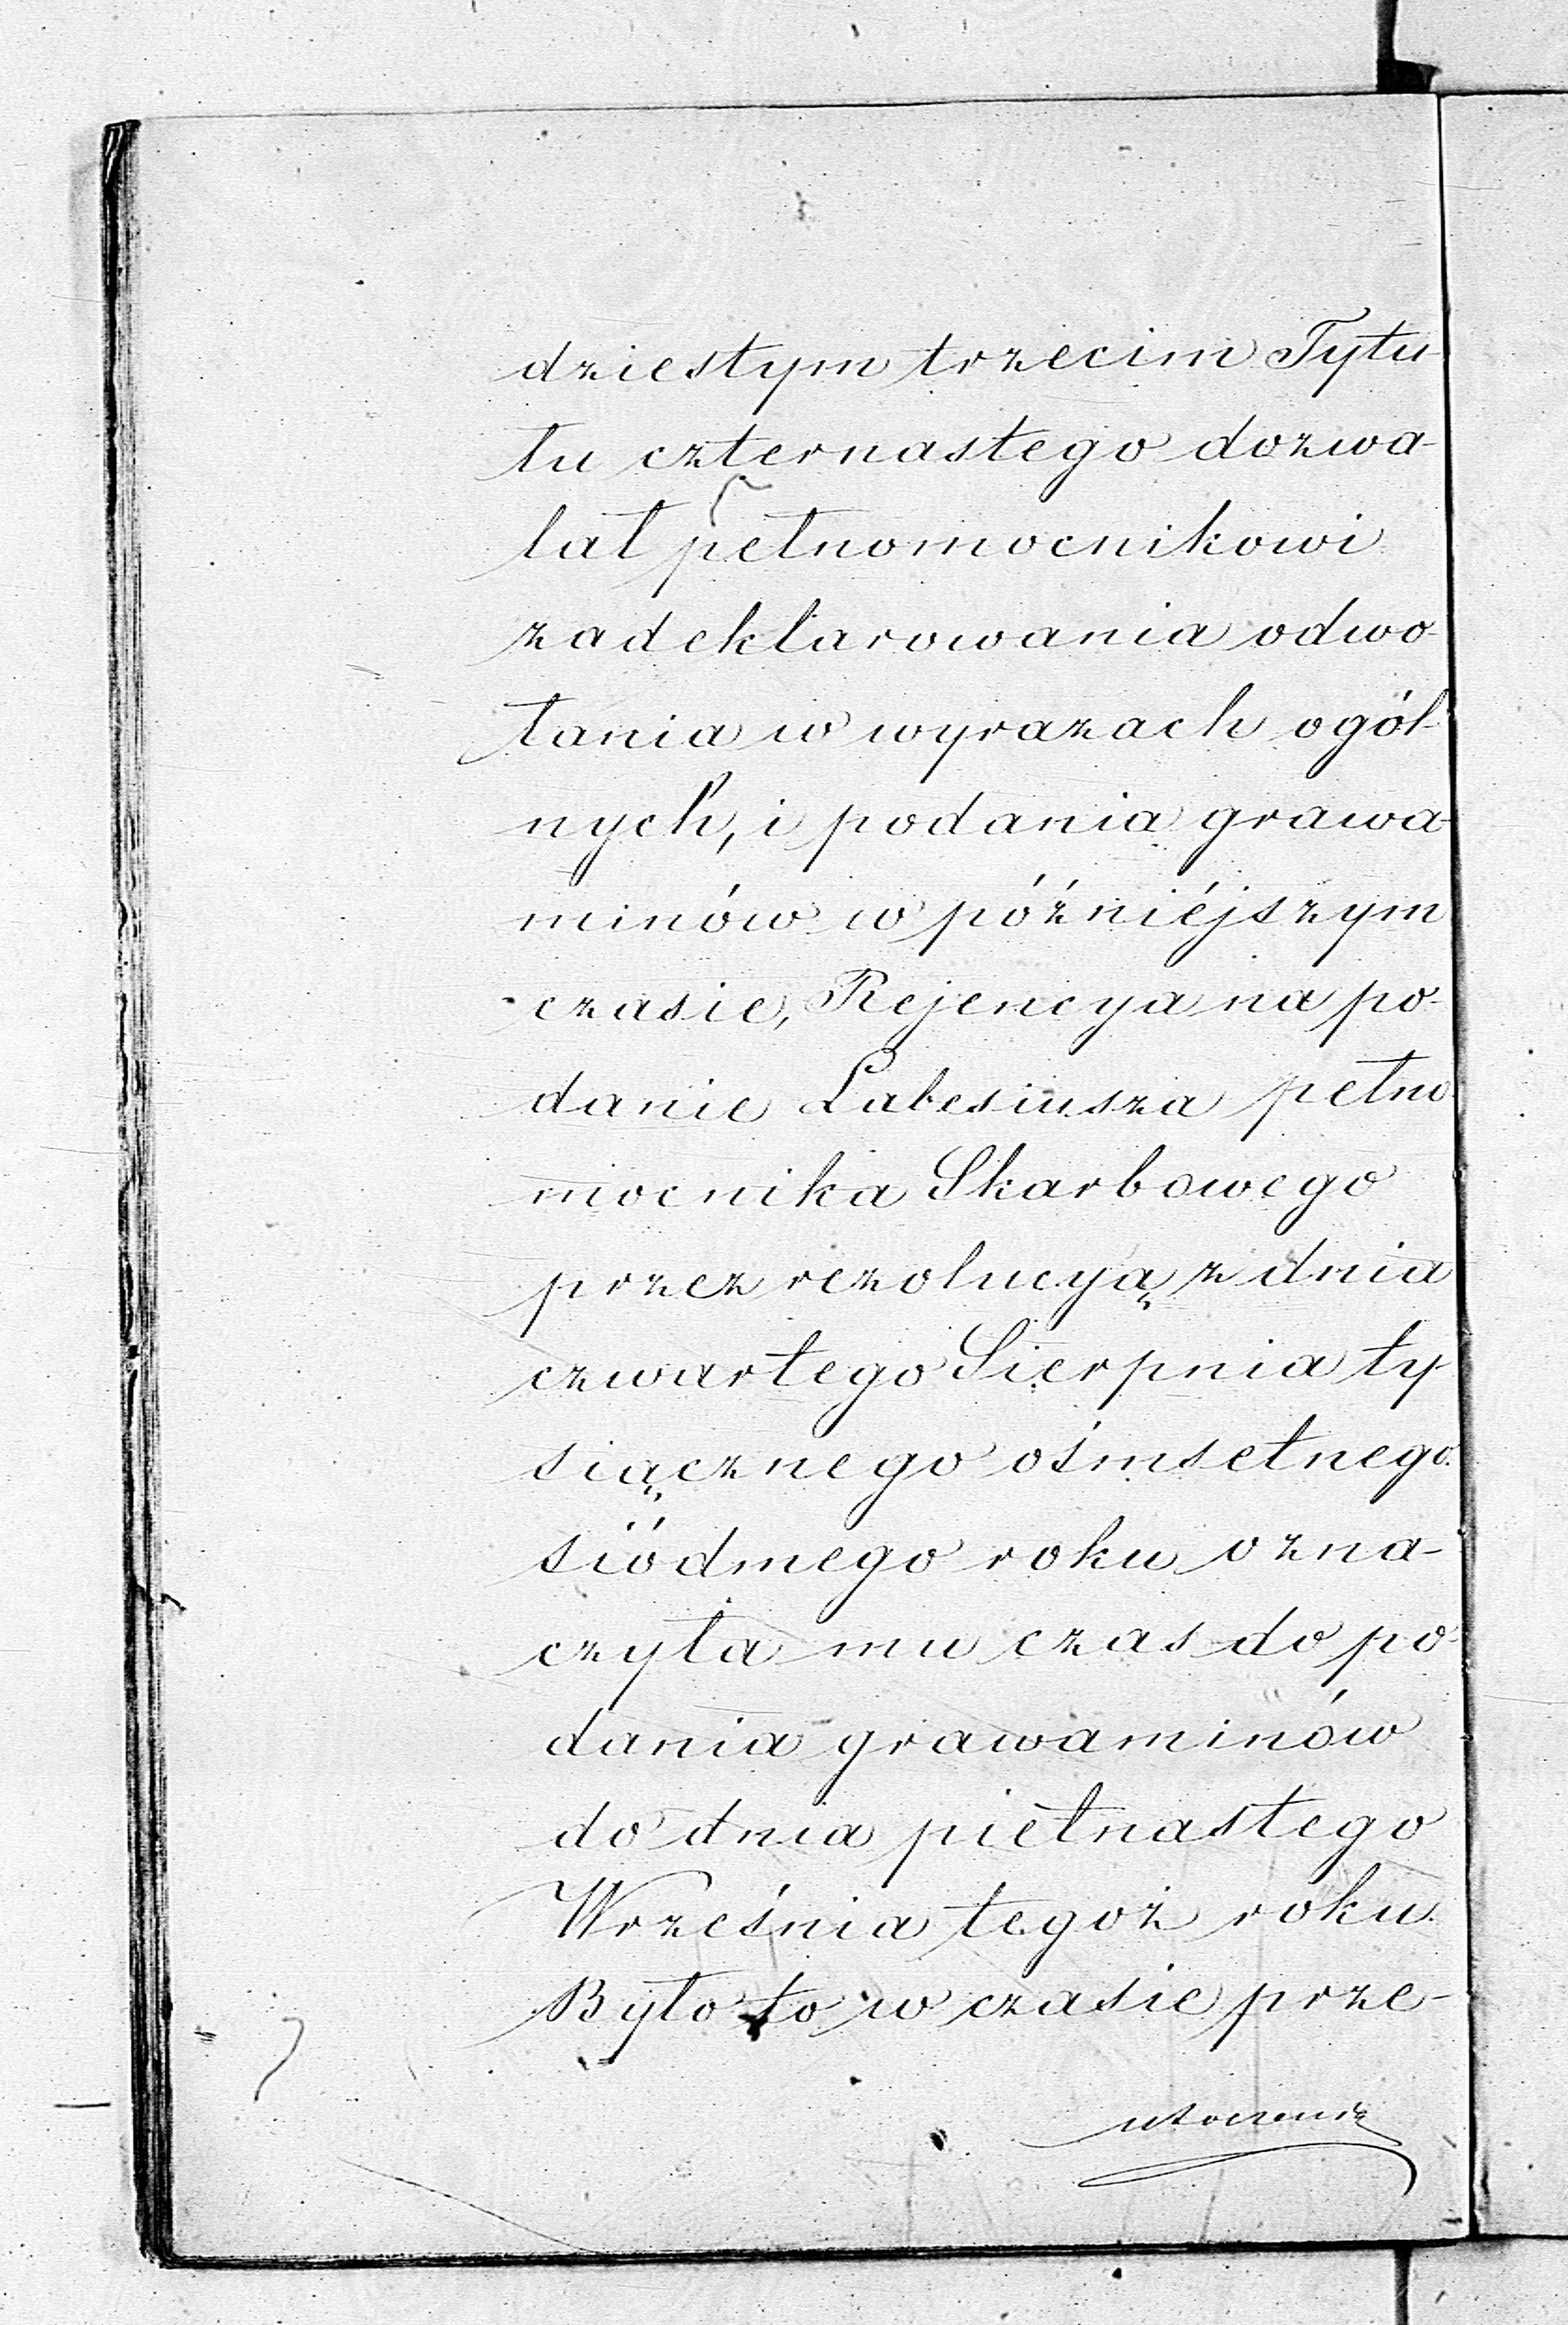 dziestym trzecim Tytu-
łu czternastego dozwa-
lał pełnomocnikowi
zadeklarowania odwo-
łania w wyrazach ogól-
nych, i podania grawa-
minów w późniéjszym
czasie, Rejencya na po-
danie Labesiusza pełno-
mocnika Skarbowego
przez rezolucyą z dnia
czwartego Sierpnia ty-
siącznego ośmsetnego
siódmego roku ozna-
czyła mu czas do po-
dania grawaminów
do dnia pietnastego
Września tegoż roku.
Było to w czasie prze-